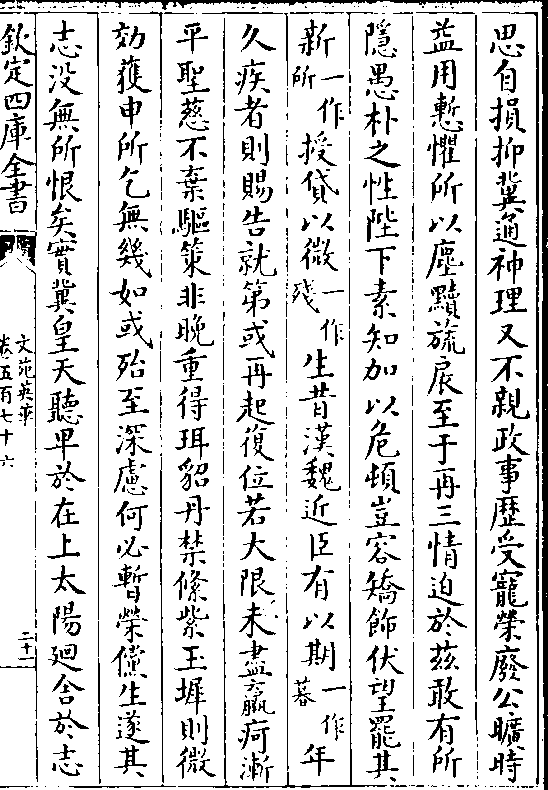 思自損抑冀通神理又不親政事歴受寵榮廢公曠時
益用慙懼所以塵黷旒扆至于再三情迫於茲敢有所
隱愚朴之性陛下素知加以危頓豈容矯飾伏望罷其
新一作所授貸以微一作殘生昔漢魏近臣有以期一作暮年
久疾者則賜告就第或再起復位若大限未盡羸疴漸
平聖慈不棄驅策非晚重得珥貂丹禁絛紫玉墀則微
効獲申所乞無幾如或殆至深慮何必暫榮儻生遂其
志没無所恨矣實冀皇天聽卑於在上太陽廻舍於志
欽定四庫全書
文苑英華
卷五百七十六
二十二